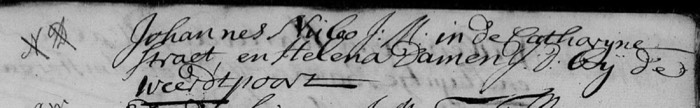 Johannes J: M: in de Catharyne
straet, en Helena Damen J: D: bÿ de
weerdtpoort